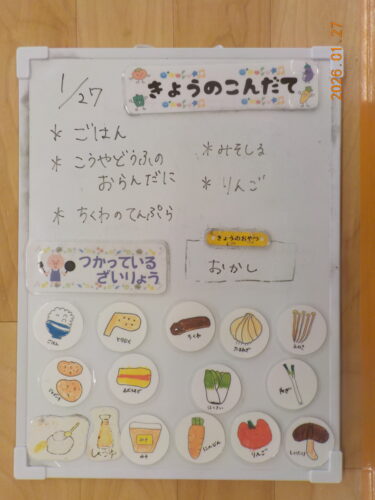 2026.01.27
1/27
きょうのこんだて
* ごはん
* こうやどうふの
おらんだに
* ちくわのてんぷら
* みそしる
* りんご
きょうのおやつ
おかし
つかっている
ざいりょう
ごはん
とりにく
ちくわ
たまねぎ
えのき
じゃがいも
はくさい
ねぎ
しょうゆ
みそ
にんじん
りんご
しいたけ